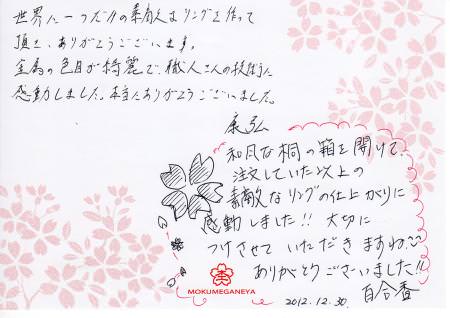 世界に一つだけの素敵なリングを作って
頂き、ありがとうございます。
金属の色目が綺麗で、職人さんの技術に
感動しました。本当にありがとうございました。
康弘
和風な桐の箱を開けて、
注文していた以上の
素敵なリングの仕上がりに
感動しました!! 大切に
つけさせていただきますね
ありがとうございました!!
百合香
MOKUMEGANEYA
2012.12.30.